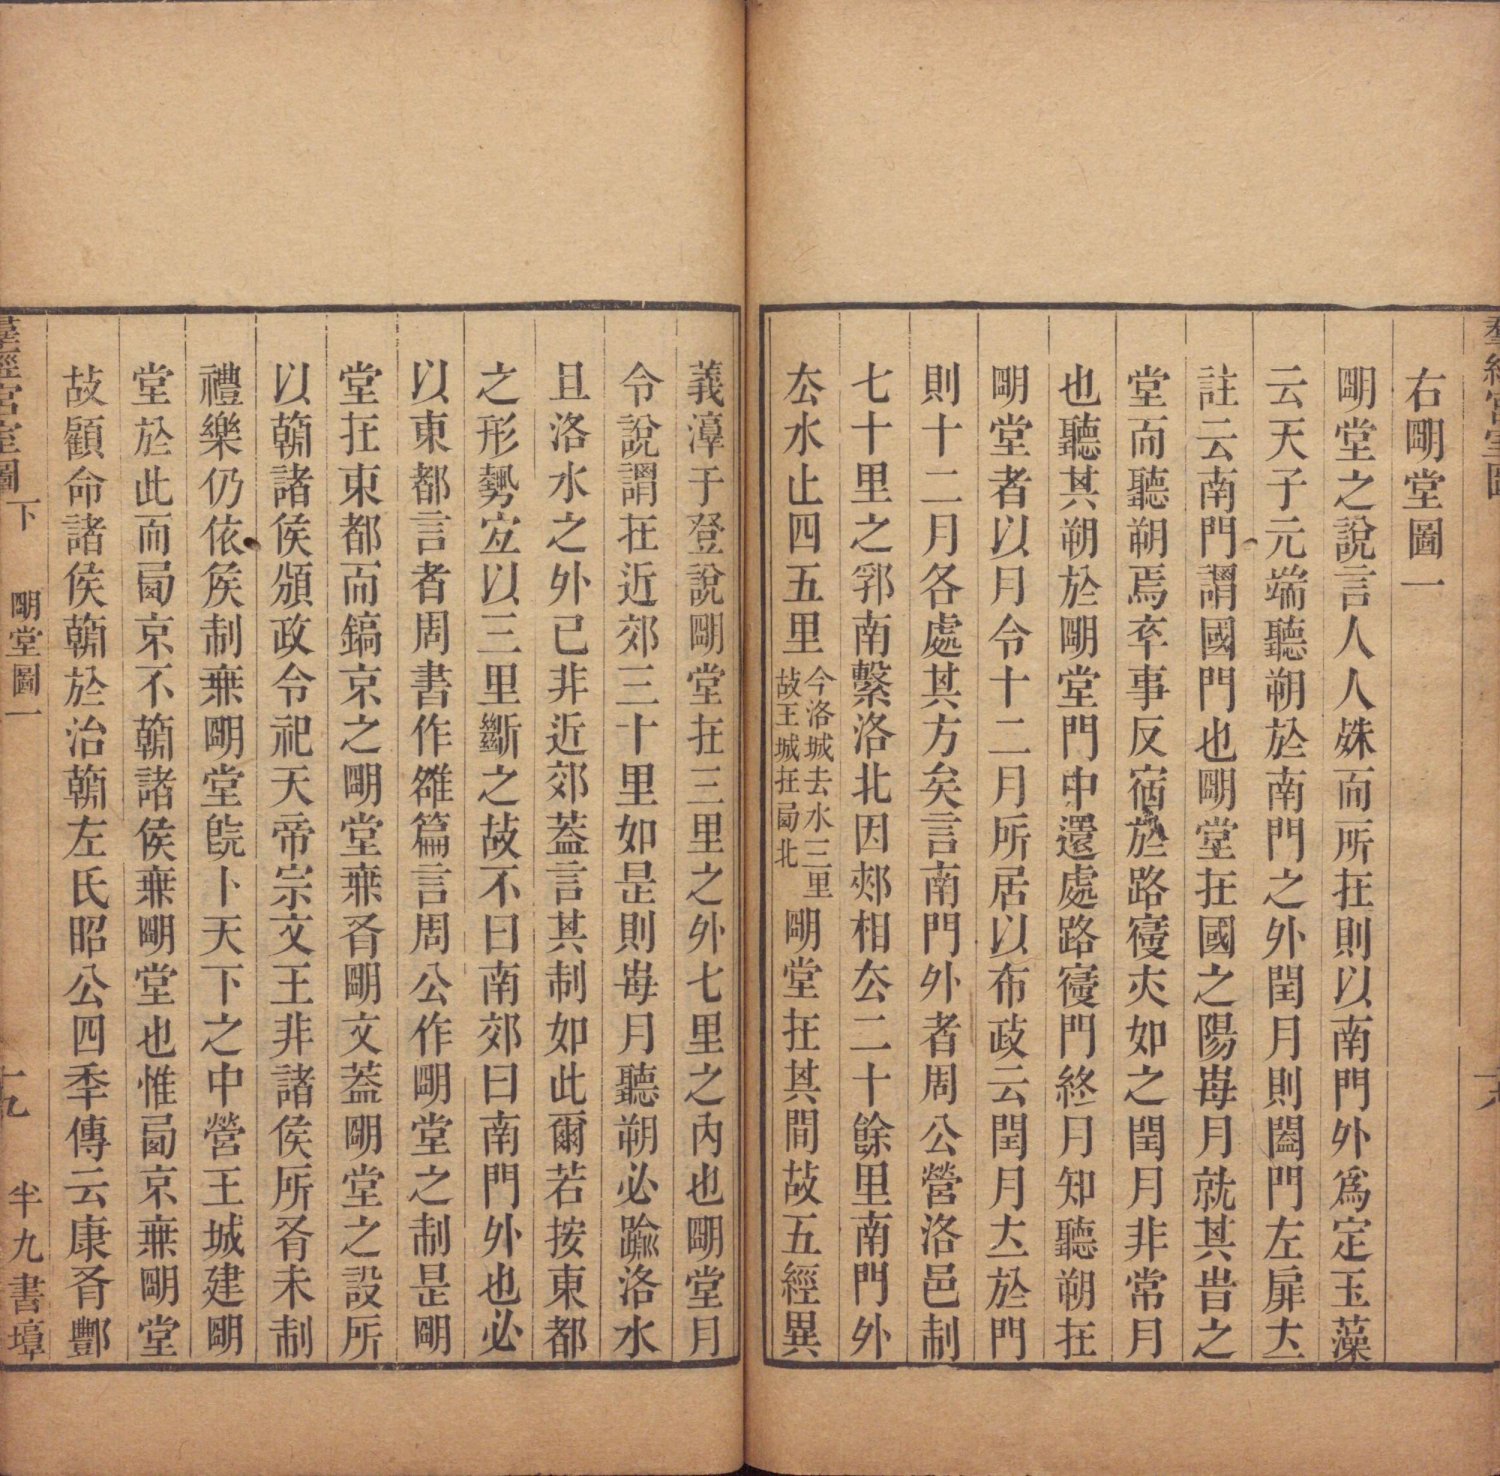 羣經宮室圖
右朙堂圖一
朙堂之說言人人姝而所在則以南門外爲定玉藻
云天子元端聽朔於南門之外閏月則闔門左扉立
註云南門謂國門也朙堂在國之陽每月就其旹之
堂而聽朔焉卒事反宿於路寑亦如之閏月非常月
也聽其朔於朙堂門中還處路寑門終月知聽朔在
朙堂者以月令十二月所居以布政云閏月立於門
則十二月各處其方矣言南門外者周公營洛邑制
七十里之郛南繫洛北因郟相去二十餘里南門外
去水止四五里
今洛城去水三里
故王城在啚北
朙堂在其間故五經異
義淳于登說朙堂在三里之外七里之內也朙堂月
令說謂在近郊三十里如是則每月聽朔必踰洛水
且洛水之外已非近郊葢言其制如此爾若按東都
之形勢宐以三里斷之故不曰南郊曰南門外也必
以東都言者周書作雒篇言周公作朙堂之制是朙
堂在東都而鎬京之朙堂無𠕋朙文葢朙堂之設所
以朝諸侯頒政令祀天帝宗文王非諸侯所有未制
禮樂仍依侯制無朙堂旣卜天下之中營王城建朙
堂於此而啚京不朝諸侯無朙堂也惟啚京無朙堂
故顧命諸侯朝於治朝左氏昭公四秊傳云康有酆
羣經宮室圖
下
朙堂圖一
十九
半九書塾